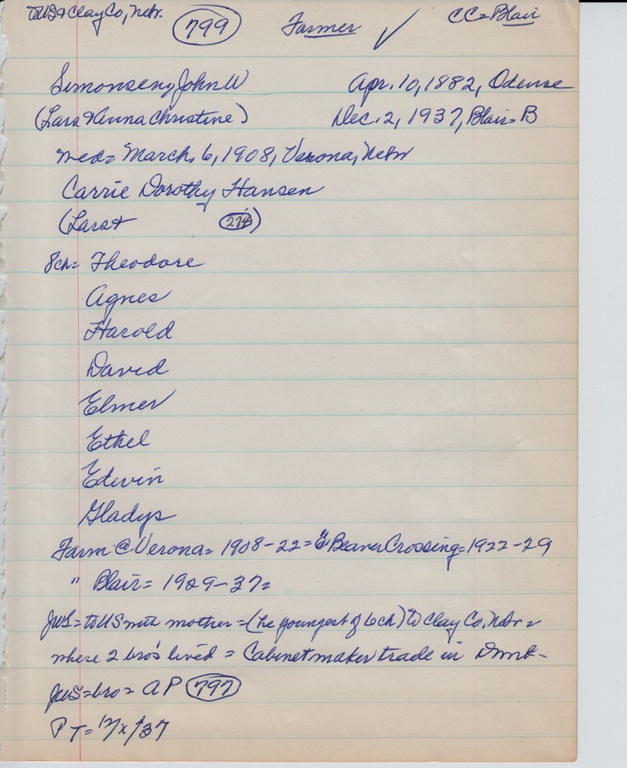 to US & Clay Co, Nebr. 799 Farmer ✓ CC = Blair
Simonsen, John W Apr. 10, 1882, Odense
(Lars & Anna Christine) Dec. 2, 1937, Blair = B
Med = March 6, 1908, Verona, Nebr
Carrie Dorothy Hansen
(Lars & 274)
8 ch = Theodore
Agnes
Harold
David
Elmer
Ethel
Edwin
Gladys
Farm @ Verona = 1908-22 = @ Beaver Crossing = 1922-29
" Blair = 1929-37 =
JWS = to US with mother = (he youngest of 6 ch) to Clay Co, Nebr =
where 2 bro's lived = Cabinet maker trade in Dmrk -
JWS = bro = A P 797
P T = 12/ /37